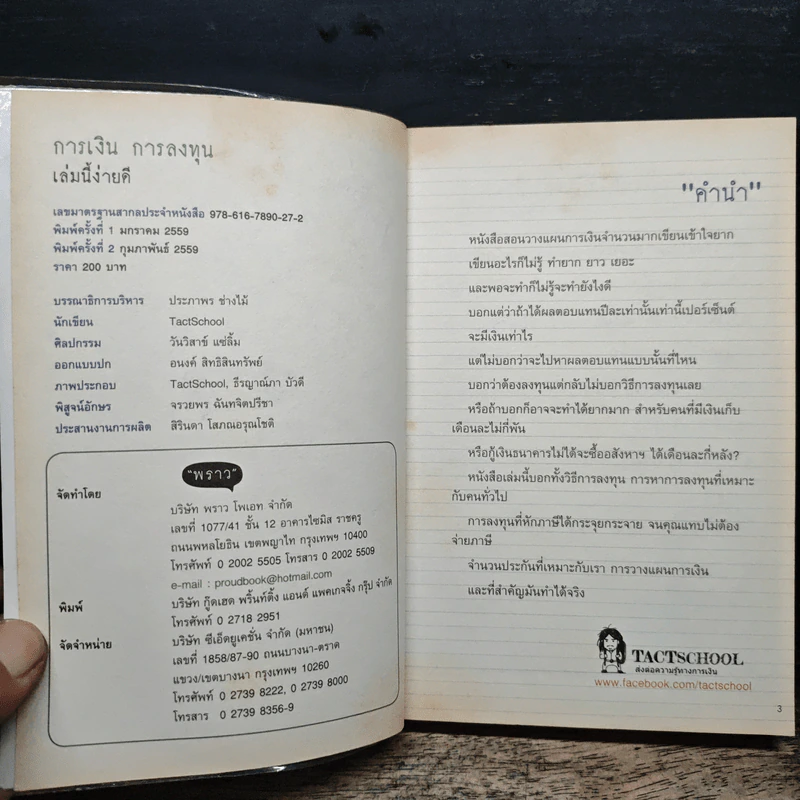 การเงิน การลงทุน
เล่มนี้ง่ายดี
เลขมาตรฐานสากลประจำหนังสือ 978-616-7890-27-2
พิมพ์ครั้งที่ 1 มกราคม 2559
พิมพ์ครั้งที่ 2 กุมภาพันธ์ 2559
ราคา 200 บาท
บรรณาธิการบริหาร ประภาพร ช่างไม้
นักเขียน TactSchool
ศิลปกรรม วันวิสาข์ แซ่ลิ้ม
ออกแบบปก อนงค์ สิทธิสินทรัพย์
ภาพประกอบ TactSchool, ธีรญาณ์ภา บัวดี
พิสูจน์อักษร จรวยพร ฉันทจิตปรีชา
ประสานงานการผลิต สิรินดา โสภณอรุณโชติ
"พราว"
จัดทำโดย บริษัท พราว โพเอท จำกัด
เลขที่ 1077/41 ชั้น 12 อาคารไซมิส ราชครู
ถนนพหลโยธิน เขตพญาไท กรุงเทพฯ 10400
โทรศัพท์ 0 2002 5505 โทรสาร 0 2002 5509
e-mail : proudbook@hotmail.com
พิมพ์ บริษัท กู๊ดเฮด พริ้นท์ติ้ง แอนด์ แพคเกจจิ้ง กรุ๊ป จำกัด
โทรศัพท์ 0 2718 2951
จัดจำหน่าย บริษัท ซีเอ็ดยูเคชั่น จำกัด (มหาชน)
เลขที่ 1858/87-90 ถนนบางนา-ตราด
แขวง/เขตบางนา กรุงเทพฯ 10260
โทรศัพท์ 0 2739 8222, 0 2739 8000
โทรสาร 0 2739 8356-9
"คำนำ"
หนังสือสอนวางแผนการเงินจำนวนมากเขียนเข้าใจยาก
เขียนอะไรก็ไม่รู้ ทำยาก ยาว เยอะ
และพอจะทำก็ไม่รู้จะทำยังไงดี
บอกแต่ว่าถ้าได้ผลตอบแทนปีละเท่านั้นเท่านี้เปอร์เซ็นต์
จะมีเงินเท่าไร
แต่ไม่บอกว่าจะไปหาผลตอบแทนแบบนั้นที่ไหน
บอกว่าต้องลงทุนแต่กลับไม่บอกวิธีการลงทุนเลย
หรือถ้าบอกก็อาจจะทำได้ยากมาก สำหรับคนที่มีเงินเก็บ
เดือนละไม่กี่พัน
หรือกู้เงินธนาคารไม่ได้จะซื้ออสังหาฯ ได้เดือนละกี่หลัง?
หนังสือเล่มนี้บอกทั้งวิธีการลงทุน การหาการลงทุนที่เหมาะ
กับคนทั่วไป
การลงทุนที่หักภาษีได้กระจุยกระจาย จนคุณแทบไม่ต้อง
จ่ายภาษี
จำนวนประกันที่เหมาะกับเรา การวางแผนการเงิน
และที่สำคัญมันทำได้จริง
TACTSCHOOL
ส่งต่อความรู้ทางการเงิน
www.facebook.com/tactschool
3